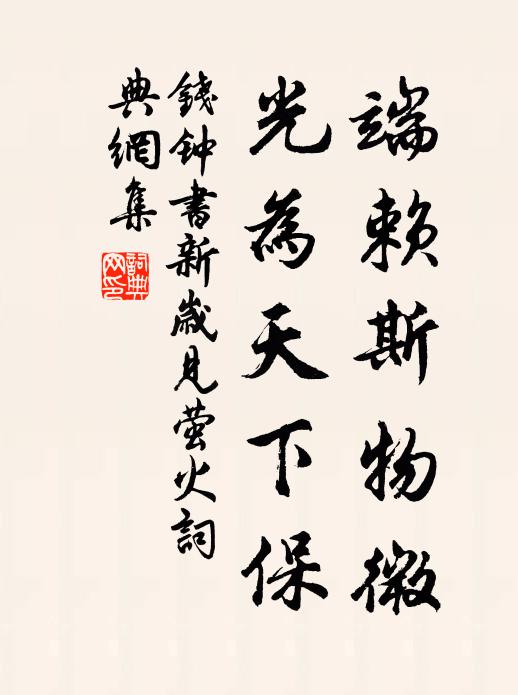 端賴斯物微
光為天下保
錢钟書新歲見萤火詞
典網集
詞典
网印